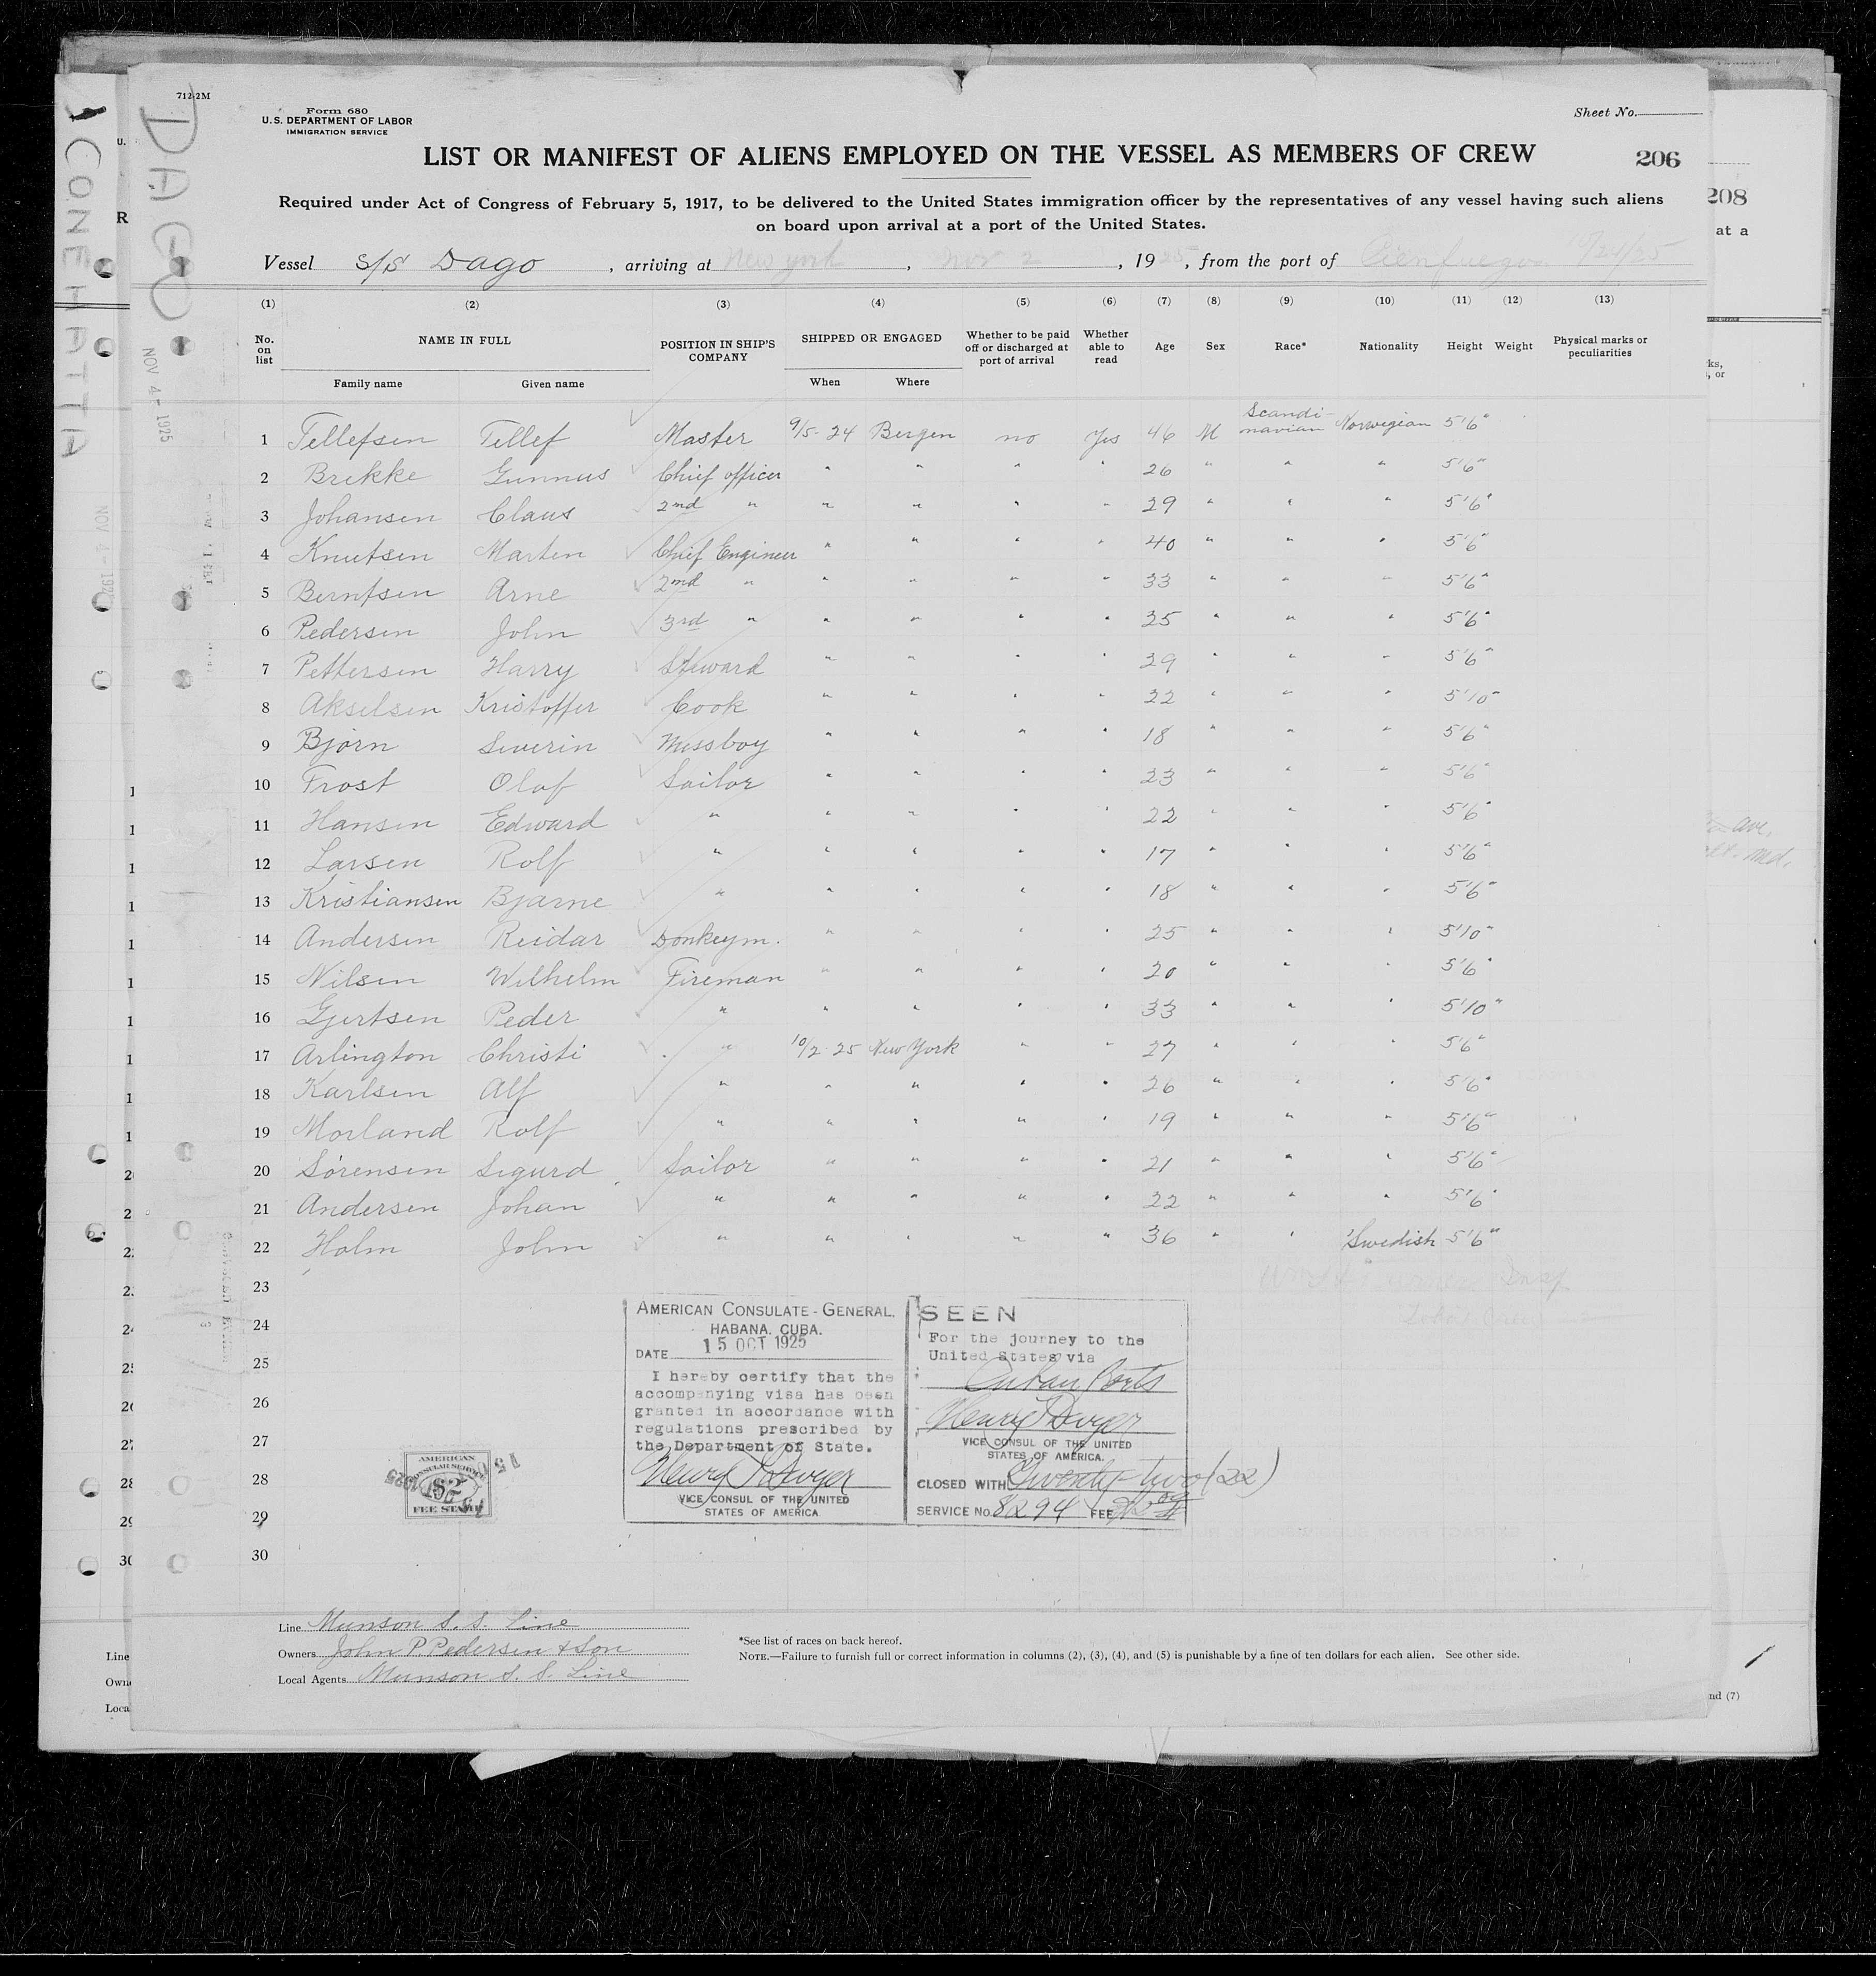 712-2M
Form 680
U.S. DEPARTMENT OF LABOR
IMMIGRATION SERVICE
Sheet No.
LIST OR MANIFEST OF ALIENS EMPLOYED ON THE VESSEL AS MEMBERS OF CREW
206
Required under Act of Congress of February 5, 1917, to be delivered to the United States immigration officer by the representatives of any vessel having such aliens
on board upon arrival at a port of the United States.
Vessel S/S Dago, arriving at New York, Nov 2, 1925, from the port of Cienfuegos 10/24/25
(1) (2) (3) (4) (5) (6) (7) (8) (9) (10) (11) (12) (13)
No. on list NAME IN FULL Family name Given name POSITION IN SHIP'S COMPANY SHIPPED OR ENGAGED When Where Whether to be paid off or discharged at port of arrival Whether able to read Age Sex Race* Nationality Height Weight Physical marks or peculiarities
1 Tellefsen Tellef Master 9/5-24 Bergen no Yes 46 M Scandi-navian Norwegian 5'6"
2 Brekke Gunnus Chief officer " " " " 26 " " " 5'6"
3 Johansen Claus 2nd " " " " " 29 " " " 5'6"
4 Knutsen Marten Chief Engineer " " " " 40 " " " 5'6"
5 Berntsen Arne 2nd " " " " " 33 " " " 5'6"
6 Pedersen John 3rd " " " " " 35 " " " 5'6"
7 Pettersen Harry Steward " " " " 39 " " " 5'6"
8 Akselsen Kristoffer Cook " " " " 22 " " " 5'10"
9 Bjørn Severin Messboy " " " " 18 " " " 5'6"
10 Frost Olaf Sailor " " " " 23 " " " 5'6"
11 Hansen Edward " " " " " 22 " " " 5'6"
12 Larsen Rolf " " " " " 17 " " " 5'6"
13 Kristiansen Bjarne " " " " " 18 " " " 5'6"
14 Andersen Reidar Donkeym. " " " " 25 " " " 5'10"
15 Nilsen Wilhelm Fireman " " " " 20 " " " 5'6"
16 Gjertsen Peder " " " " " 33 " " " 5'10"
17 Arlington Christi " 10/2-25 New York " " 27 " " " 5'6"
18 Karlsen Alf " " " " " 26 " " " 5'6"
19 Morland Rolf " " " " " 19 " " " 5'6"
20 Sørensen Sigurd Sailor " " " " 21 " " " 5'6"
21 Andersen Johan " " " " " 22 " " " 5'6"
22 Holm John " " " " " 36 " " Swedish 5'6"
23
24
25
26
27
28
29
30
AMERICAN CONSULATE-GENERAL.
HABANA, CUBA.
DATE 15 OCT 1925
I hereby certify that the
accompanying visa has been
granted in accordance with
regulations prescribed by
the Department of State.
VICE CONSUL OF THE UNITED
STATES OF AMERICA
SEEN
For the journey to the
United States via
Cuban Ports
VICE CONSUL OF THE UNITED
STATES OF AMERICA.
CLOSED WITH Twenty-two (22)
SERVICE No. 8294 FEE
AMERICAN
CONSULAR SERVICE
FEE STAMP
Line Munson S. S. Line
Owners John P. Pedersen & Son
Local Agents Munson S. S. Line
*See list of races on back hereof.
NOTE.—Failure to furnish full or correct information in columns (2), (3), (4), and (5) is punishable by a fine of ten dollars for each alien. See other side.
DAGO
NOV 4 - 1925
CONEHATTA
208
at a
nd (7)